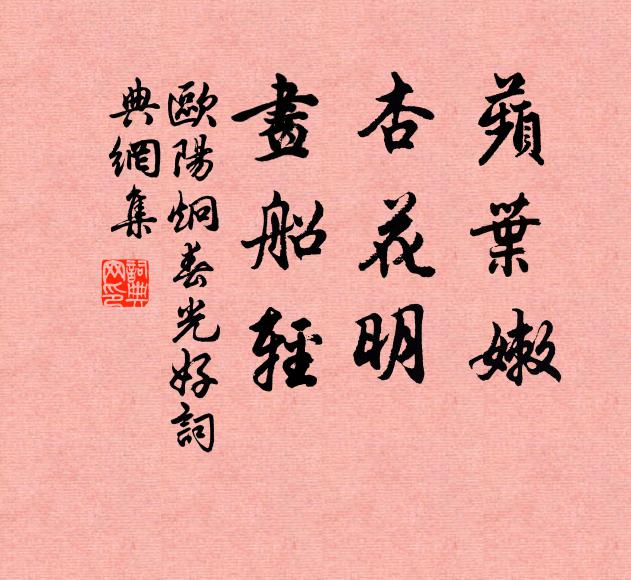 蘋葉嫩
杏花明
畫船輕
歐陽炯春光好詞
典網集
詞典
网印